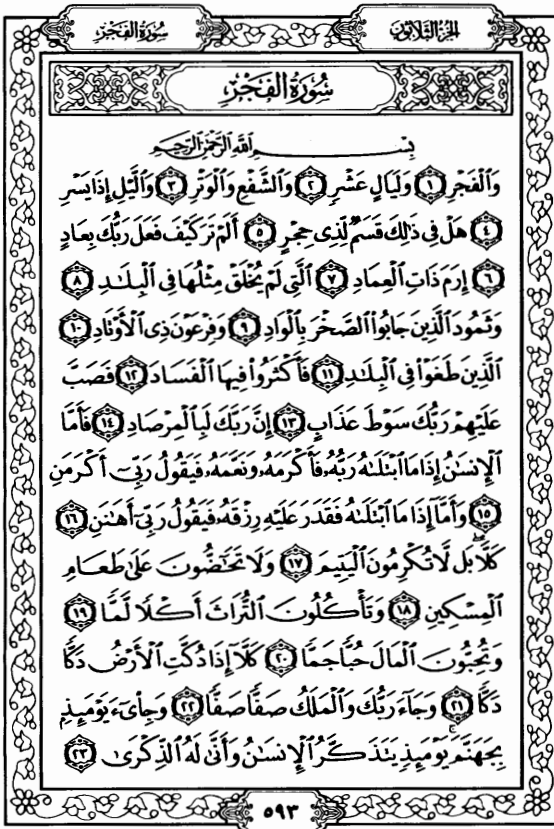 سُورَةُ الفَجْرِ
الجُزْءُ الثَّلَاثُونَ
سُورَةُ الفَجْرِ
بِسْمِ ٱللَّهِ ٱلرَّحْمَٰنِ ٱلرَّحِيمِ
وَٱلْفَجْرِ ١ وَلَيَالٍ عَشْرٍ ٢ وَٱلشَّفْعِ وَٱلْوَتْرِ ٣ وَٱلَّيْلِ إِذَا يَسْرِ
٤ هَلْ فِى ذَٰلِكَ قَسَمٌ لِّذِى حِجْرٍ ٥ أَلَمْ تَرَ كَيْفَ فَعَلَ رَبُّكَ بِعَادٍ
٦ إِرَمَ ذَاتِ ٱلْعِمَادِ ٧ ٱلَّتِى لَمْ يُخْلَقْ مِثْلُهَا فِى ٱلْبِلَٰدِ ٨
وَثَمُودَ ٱلَّذِينَ جَابُوا۟ ٱلصَّخْرَ بِٱلْوَادِ ٩ وَفِرْعَوْنَ ذِى ٱلْأَوْتَادِ ١٠
ٱلَّذِينَ طَغَوْا۟ فِى ٱلْبِلَٰدِ ١١ فَأَكْثَرُوا۟ فِيهَا ٱلْفَسَادَ ١٢ فَصَبَّ
عَلَيْهِمْ رَبُّكَ سَوْطَ عَذَابٍ ١٣ إِنَّ رَبَّكَ لَبِٱلْمِرْصَادِ ١٤ فَأَمَّا
ٱلْإِنسَٰنُ إِذَا مَا ٱبْتَلَىٰهُ رَبُّهُۥ فَأَكْرَمَهُۥ وَنَعَّمَهُۥ فَيَقُولُ رَبِّىٓ أَكْرَمَنِ
١٥ وَأَمَّآ إِذَا مَا ٱبْتَلَىٰهُ فَقَدَرَ عَلَيْهِ رِزْقَهُۥ فَيَقُولُ رَبِّىٓ أَهَٰنَنِ ١٦
كَلَّا ۖ بَل لَّا تُكْرِمُونَ ٱلْيَتِيمَ ١٧ وَلَا تَحَٰٓضُّونَ عَلَىٰ طَعَامِ
ٱلْمِسْكِينِ ١٨ وَتَأْكُلُونَ ٱلتُّرَاثَ أَكْلًا لَّمًّا ١٩
وَتُحِبُّونَ ٱلْمَالَ حُبًّا جَمًّا ٢٠ كَلَّآ إِذَا دُكَّتِ ٱلْأَرْضُ دَكًّا
دَكًّا ٢١ وَجَآءَ رَبُّكَ وَٱلْمَلَكُ صَفًّا صَفًّا ٢٢ وَجِا۟ىٓءَ يَوْمَئِذٍۭ
بِجَهَنَّمَ ۚ يَوْمَئِذٍ يَتَذَكَّرُ ٱلْإِنسَٰنُ وَأَنَّىٰ لَهُ ٱلذِّكْرَىٰ ٢٣
٥٩٣